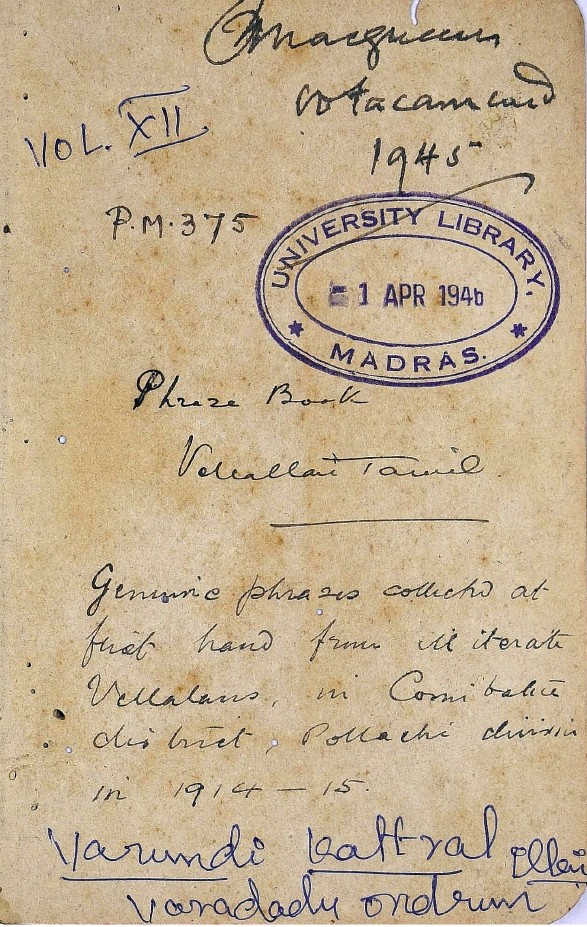 CMacqueen
Ootacamund
1945
VOL. XII
P.M.375
UNIVERSITY LIBRARY.
1 APR 1946
MADRAS.
Phrase Book
Vellallan Tamil
Genuine phrases collected at
first hand from illiterate
Vellalans, in Coimbatore
district, Pollachi division
in 1914-15.
Varundi kattral illai
varadadu ondrum